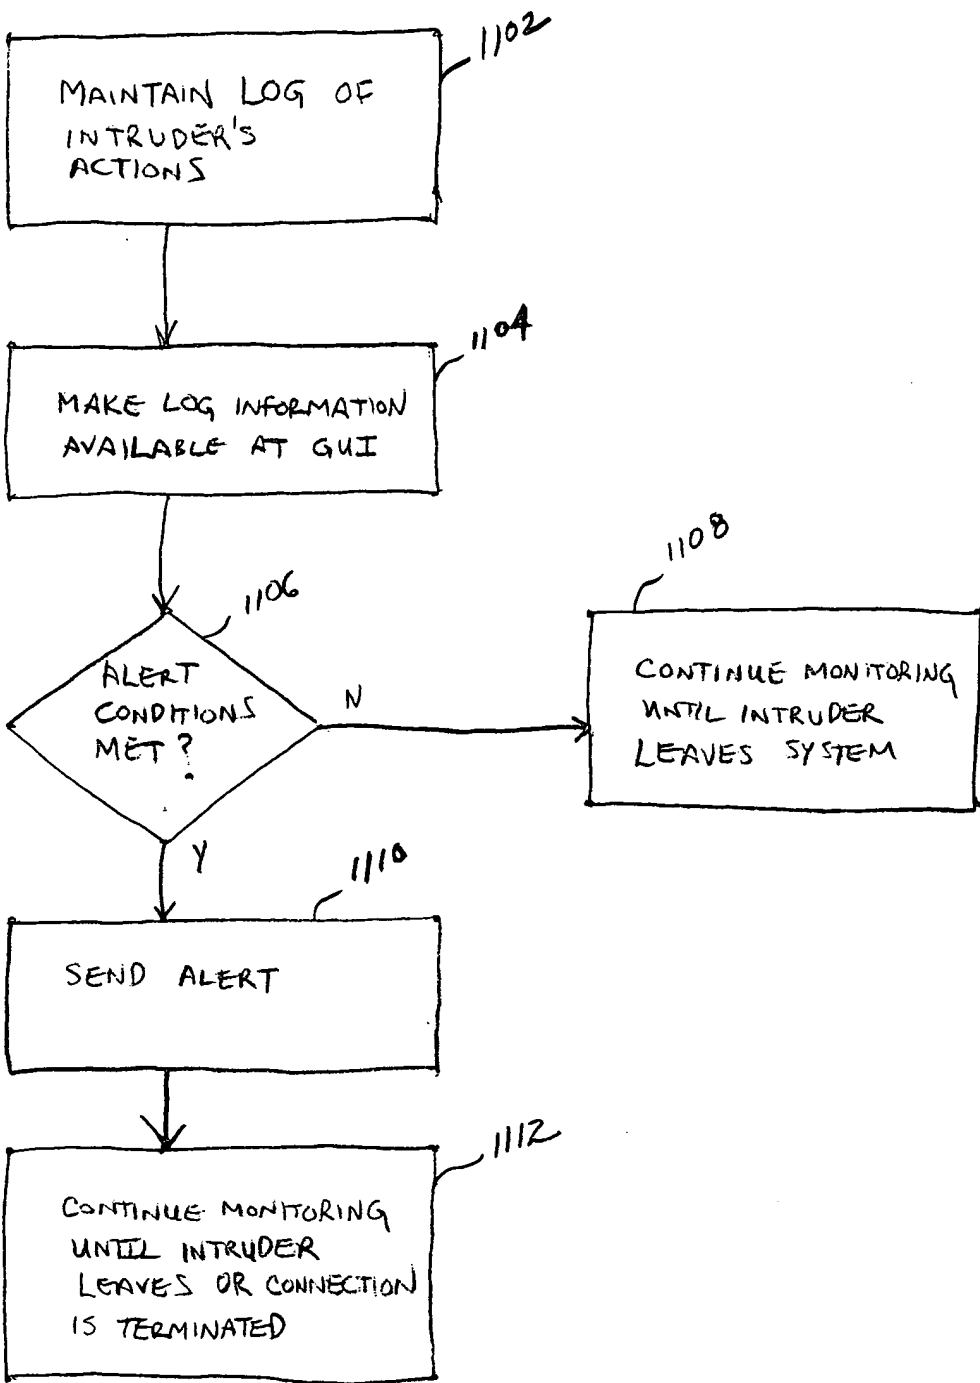 1102
MAINTAIN LOG OF
INTRUDER'S
ACTIONS
1104
MAKE LOG INFORMATION
AVAILABLE AT GUI
1106
ALERT
CONDITIONS
MET?
N
1108
CONTINUE MONITORING
UNTIL INTRUDER
LEAVES SYSTEM
Y
1110
SEND ALERT
1112
CONTINUE MONITORING
UNTIL INTRUDER
LEAVES OR CONNECTION
IS TERMINATED